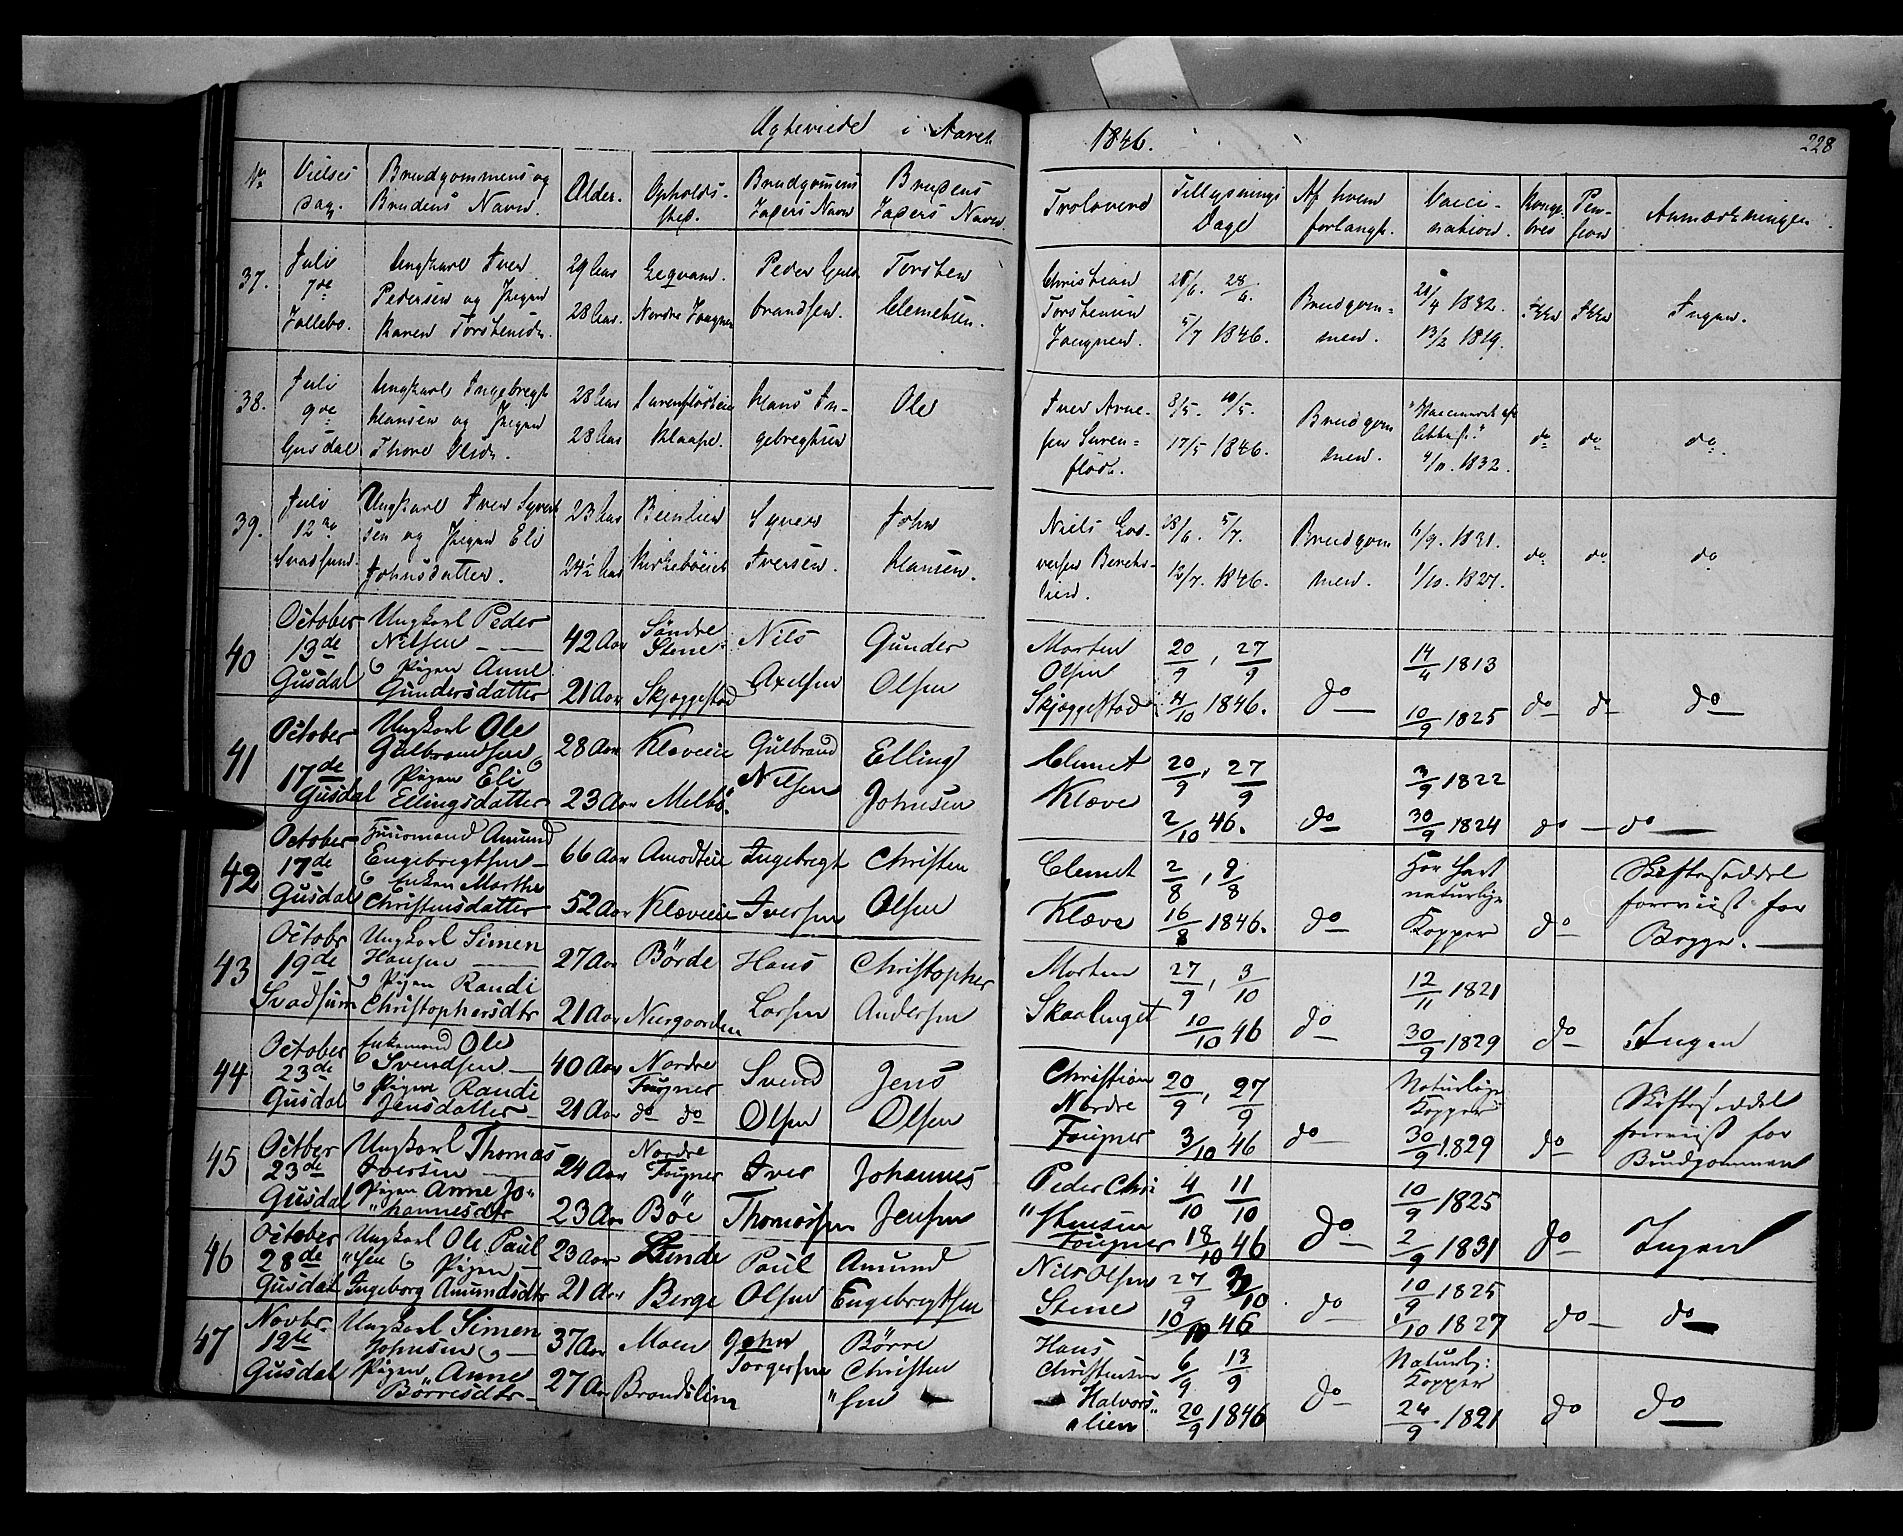 Ægteviede i Aaret 1846. 228
No. Vielses Dag. Brudgommens og Brudens Navn. Alder. Opholds-sted. Brudgomens Faders Navn Brudens Faders Navn Trolovere Tillysnings Dage Af hvem forlangt. Vacci-nation. Pen-sion Anmærkninger.
37. Juli 7de Follebo. Ungkarl Iver Pedersen og Pigen Karen Torstensdr. 29 Aar 28 Aar. Nordre Fougner Peder Gul-brandsen. Torsten Clemetsen. Christian Torstensen Fougner. 28/6. 5/7 1846. Brudgom-men. 1832. 1819. Ingen.
38. Juli 9de Gusdal Ungkarl Ingebregt Hansen og Pigen Thore Olsdr. 28 Aar 28 Aar Klaape. Hans In-gebregtsen Ole Iver Arne-sen 3/5. 10/5. 17/5 1846. Brudgom men. 1832. do do do.
39. Juli 12te Svadsum. Ungkarl Iver Syvert sen og Pigen Eli Johnsdatter. 23 Aar 24½ Aar Kirkebøeiet Syver Iversen. John Hansen. Niels 28/6 5/7. 12/7. 1846. Brudgom men. 1831. 1/10. 1827. do do do
40 October 13de Gusdal Ungkarl Peder Nilsen Pigen Anne Gundersdatter 42 Aar 21 Aar Söndre Stene Skjæggestad Nils Axelsen Gunder Olsen Morten Olsen Skjæggestad 20/9, 27/9 4/10 1846. do 14/4 1813 10/9 1825 do do do
41 October 17de Gusdal Ungkarl Ole Gulbrandsen og Pigen Eli Ellingsdatter 28 Aar 23 Aar Klæveeie Melbö. Gulbrand Nilsen Elling Johnsen Clemet Klæve 20/9, 27/9 2/10 46. do 3/9 1822 30/9 1824 do do
42 October 17de Gusdal Amund Engebregtsen Enken Marthe Christensdatter 66 Aar 52 Aar Amodteie Klæveeie Ingebregt Iversen Christen Olsen Clemet Klæve 2/8, 9/8 16/8 1846. do Har havt naturlige Kopper do Skiftesæddel foreviist for Begge.
43 Octobr 19de Svadsum Ungkarl Simen Hansen Pigen Randi Christophersdtr 27 Aar 21 Aar Börde Neergaarden Hans Larsen Christopher Andersen Morten Skaalinget 27/9, 3/10 10/10 46 do 12/11 1821 30/9 1829 do Ingen
44 October 23de Gusdal Enkemand Ole Svendsen Pigen Randi Jensdatter 40 Aar 21 Aar Nordre Fougner do do Svend Olsen Jens Olsen Christian Nordre Fougner 20/9, 27/9 3/10 46 do Naturlige Kopper 30/9 1829 do Skiftesæddel foreviist for Brudgommen
45 Octber 23de Gusdal Ungkarl Thomas Iversen Pigen Anne Jo" "hannesdtr 24 Aar 23 Aar Nordre Fougner Böe Iver Thomassen Johannes Jensen Peder Chri "stensen Fougner 4/10 11/10 18/10 46 do 10/9 1825 2/9 1831 do Ingen
46 October 28de Gusdal Ungkarl Ole Paul "sen Pigen Ingeborg Amundsdtr 23 Aar 21 Aar Lunde Berge Paul Olsen Amund Engebregtsen Nils Olsen Stene 27/9 3/10 10/10 46 do 10/9 1825 1827 do do
47 Novbr. 12te Gusdal Ungkarl Simen Johnsen Pigen Anne Börresdtr 37 Aar 27 Aar Moen Brandslien John Torgersen Börre Christen "sen Hans Christensen Halvors" "lien 6/9 13/9 20/9 1846 do Naturl: Kopper 24/9 1821 do do